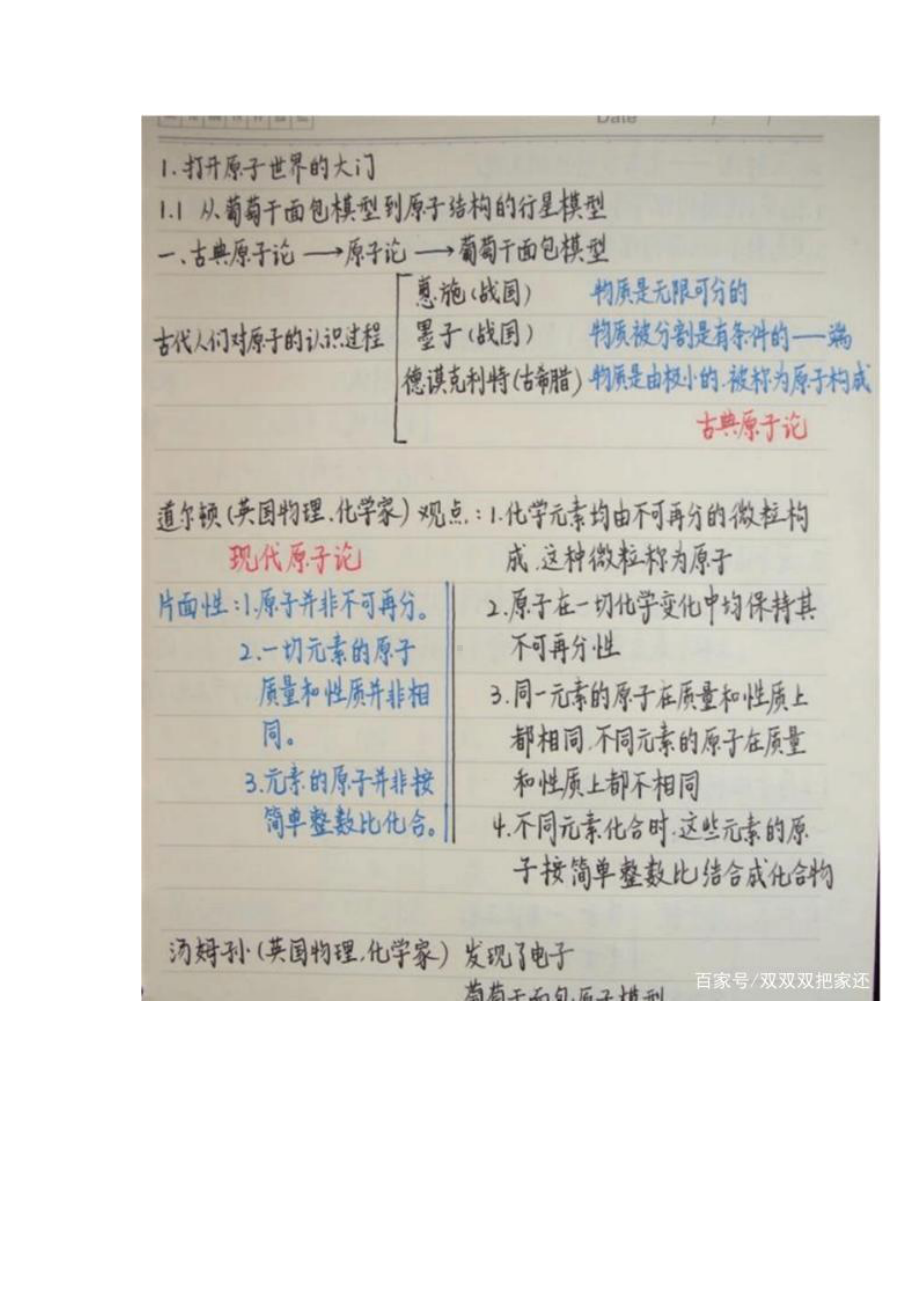 Date
1.打开原子世界的大门
1.1 从葡萄干面包模型到原子结构的行星模型
一、古典原子论→原子论→葡萄干面包模型
古代人们对原子的认识过程
惠施(战国) 物质是无限可分的
墨子(战国) 物质被分割是有条件的——端
德谟克利特(古希腊) 物质是由极小的、被称为原子构成
古典原子论
道尔顿(英国物理、化学家)观点:1.化学元素均由不可再分的微粒构
成,这种微粒称为原子
现代原子论
2.原子在一切化学变化中均保持其
不可再分性
3.同一元素的原子在质量和性质上
都相同,不同元素的原子在质量
和性质上都不相同
4.不同元素化合时,这些元素的原
子按简单整数比结合成化合物
片面性:1.原子并非不可再分。
2.一切元素的原子
质量和性质并非相
同。
3.元素的原子并非按
简单整数比化合。
汤姆孙(英国物理,化学家) 发现了电子
葡萄干面包原子模型
百家号/双双双把家还